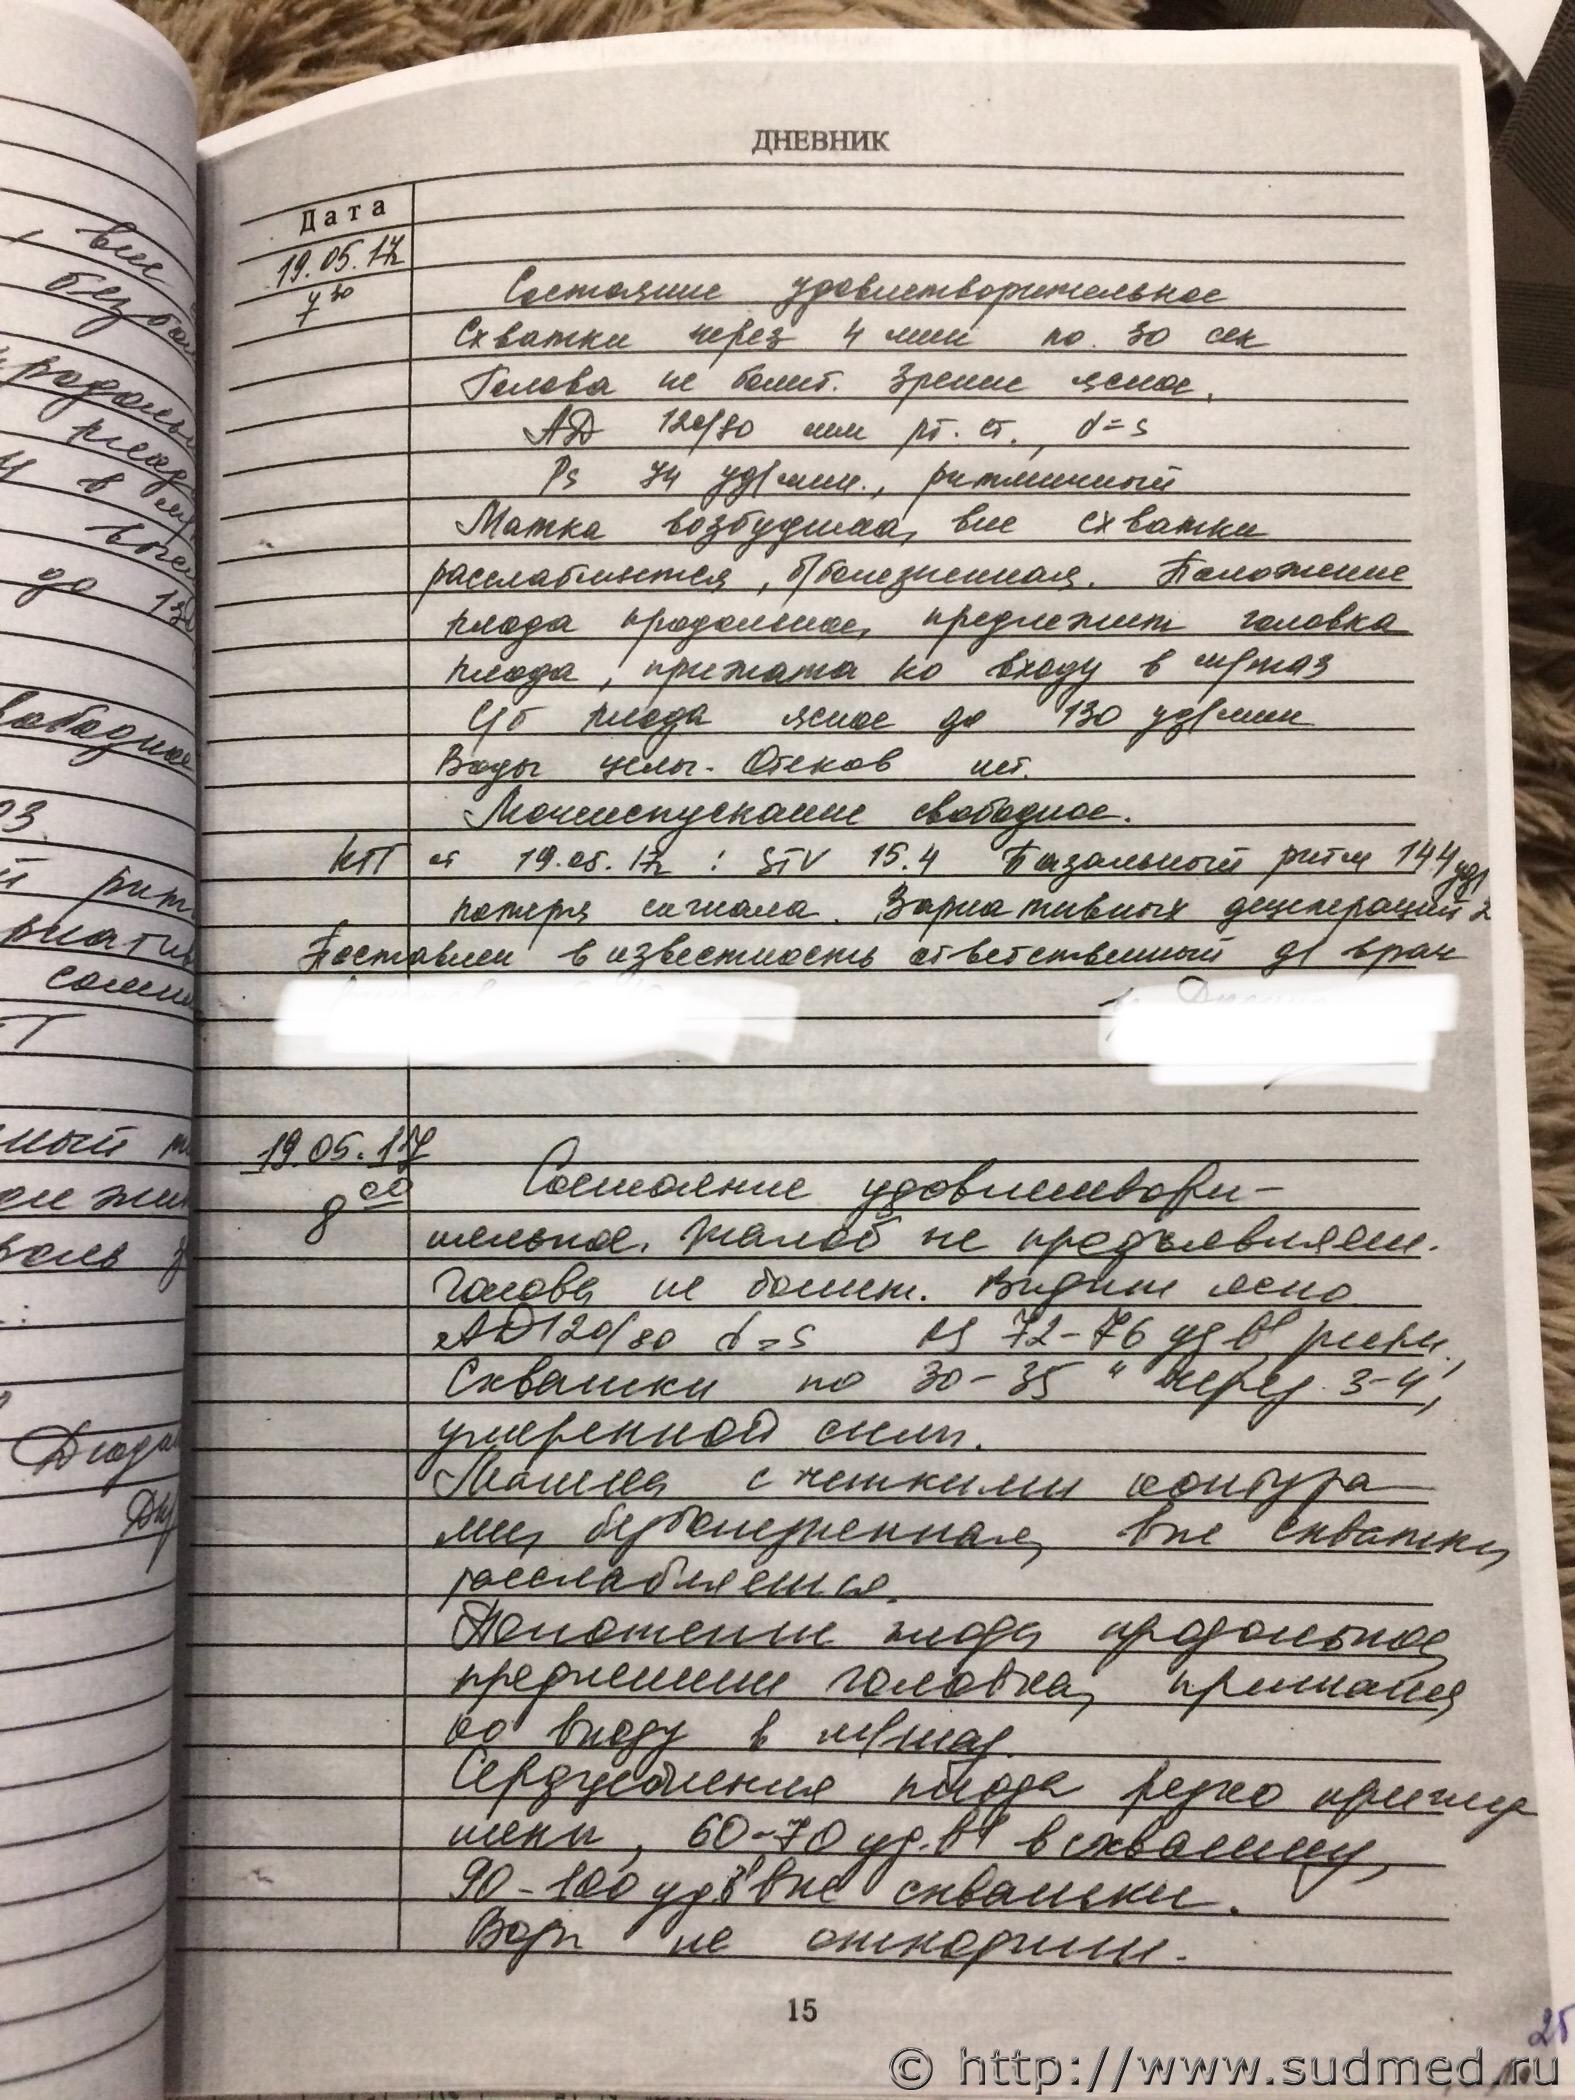 ДНЕВНИК
Дата
19.05.17г
7 30
Состояние удовлетворительное
Схватки через 4 мин по 30 сек
Голова не болит. Зрение ясное.
АД 120/80 мм рт. ст., d=s
Ps 74 уд/мин., ритмичный
Матка возбудима, вне схватки
расслабляется, б/болезненная. Положение
плода продольное, предлежит головка
плода, прижата ко входу в м/таз
С/б плода ясное до 130 уд/мин
Воды целы. Отеков нет.
Мочеиспускание свободное.
КТГ от 19.05.17г : STV 15.4 Базальный ритм 144 уд/
потеря сигнала. Вариативных децелераций 2
Поставлен в известность ответственный д/ врач
19.05.17
8 00
Состояние удовлетвори-
тельное. Жалоб не предъявляет.
Голова не болит. Видит ясно
АД 120/80 d=s Ps 72-76 уд в 1' ритм.
Схватки по 30-35" через 3-4',
умеренной силы.
Матка с четкими контура
ми, безболезненная, вне схватки
расслабляется.
Положение плода продольное,
предлежит головка, прижата
ко входу в м/таз.
Сердцебиения плода резко приглу
шены, 60-70 уд. в 1' в схватку,
90-100 уд в 1' вне схватки.
Воды не отходили.
15
25
вне
безбол
до 130
свободное
© http://www.sudmed.ru